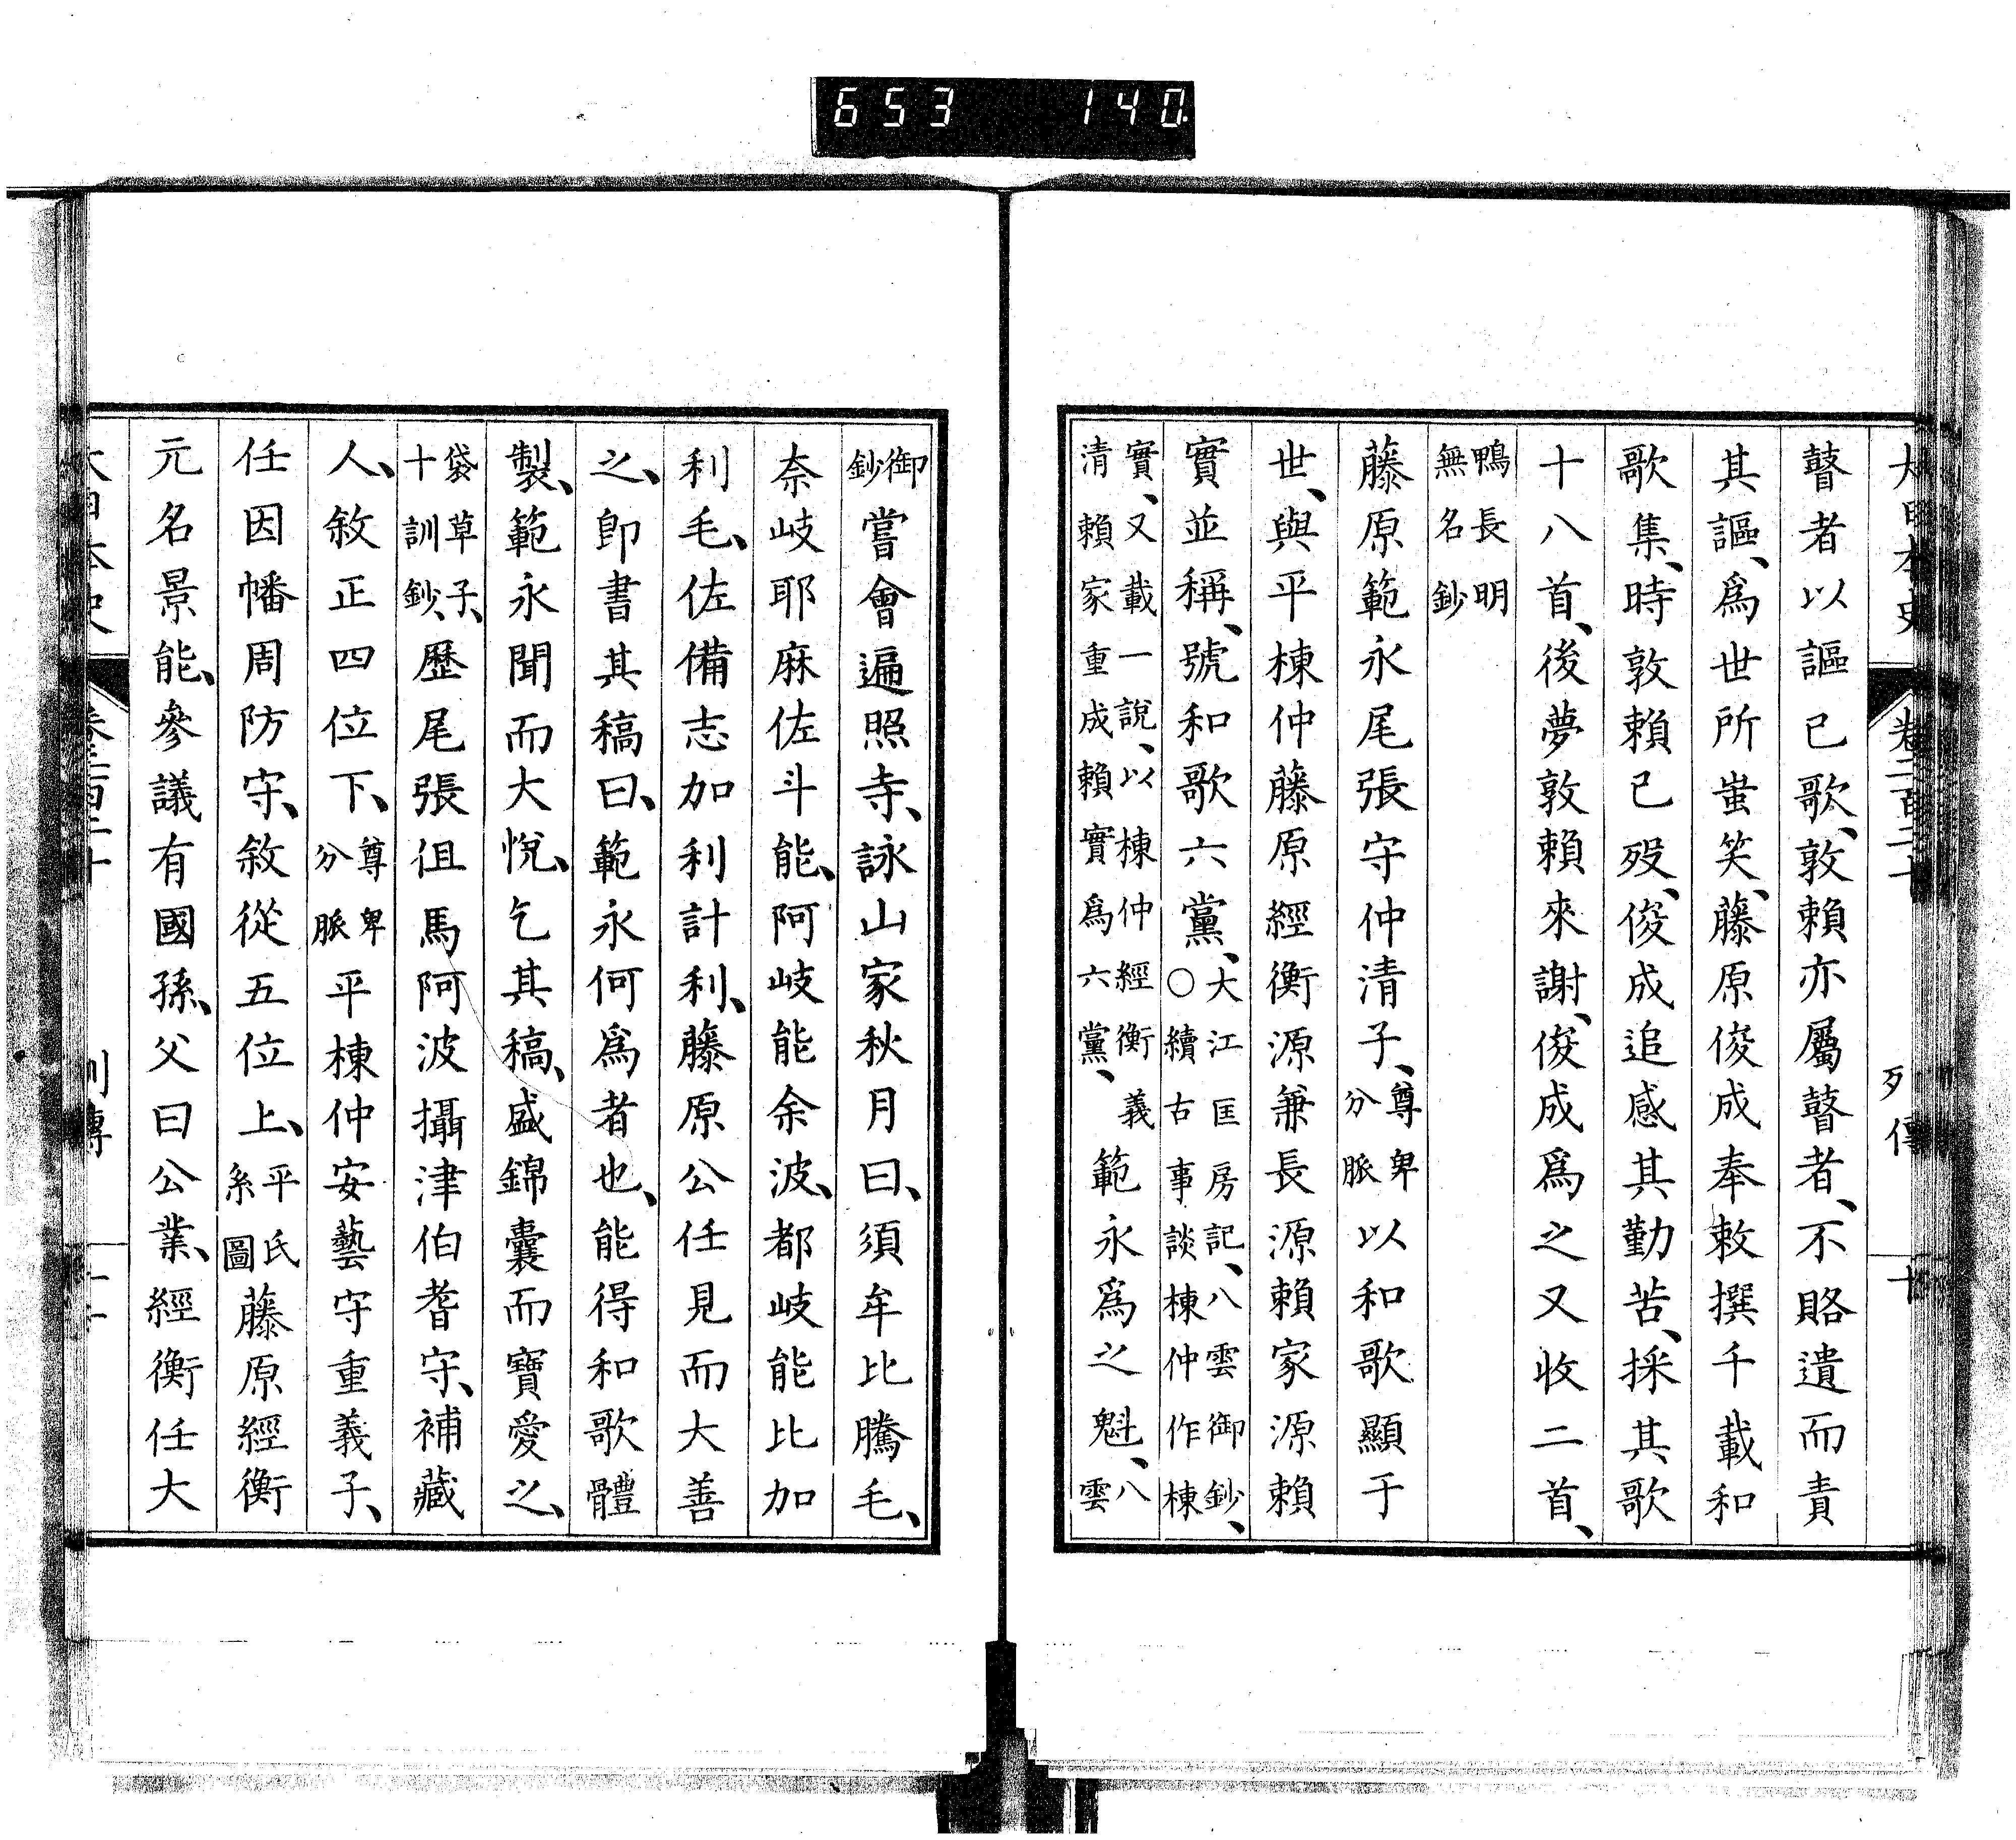 653 140
大日本史 卷二百二十 列傳 十
瞽者以謳己歌、敦賴亦屬瞽者、不賂遺而責
其謳、爲世所蚩笑、藤原俊成奉敕撰千載和
歌集、時敦賴已歿、俊成追感其勤苦、採其歌
十八首、後夢敦賴來謝、俊成爲之又收二首、
鴨長明
無名鈔
藤原範永尾張守仲清子、尊卑分脈以和歌顯于
世、與平棟仲藤原經衡源兼長源賴家源賴
實並稱、號和歌六黨、大江匡房記、八雲御鈔、○續古事談棟仲作棟
實、又載一說、以棟仲經衡義清賴家重成賴實爲六黨、範永爲之魁、八雲
御鈔嘗會遍照寺、詠山家秋月曰、須牟比騰毛、
奈岐耶麻佐斗能、阿岐能余波、都岐能比加
利毛、佐備志加利計利、藤原公任見而大善
之、卽書其稿曰、範永何爲者也、能得和歌體
製、範永聞而大悅、乞其稿、盛錦囊而寶愛之、
袋草子、十訓鈔、歷尾張但馬阿波攝津伯耆守、補藏
人、敘正四位下、尊卑分脈平棟仲安藝守重義子、
任因幡周防守、敘從五位上、平氏系圖藤原經衡
元名景能、參議有國孫、父曰公業、經衡任大
大日本史 卷二百二十 列傳